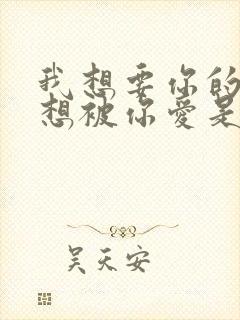 我想要你的
想被你爱是
吴天安